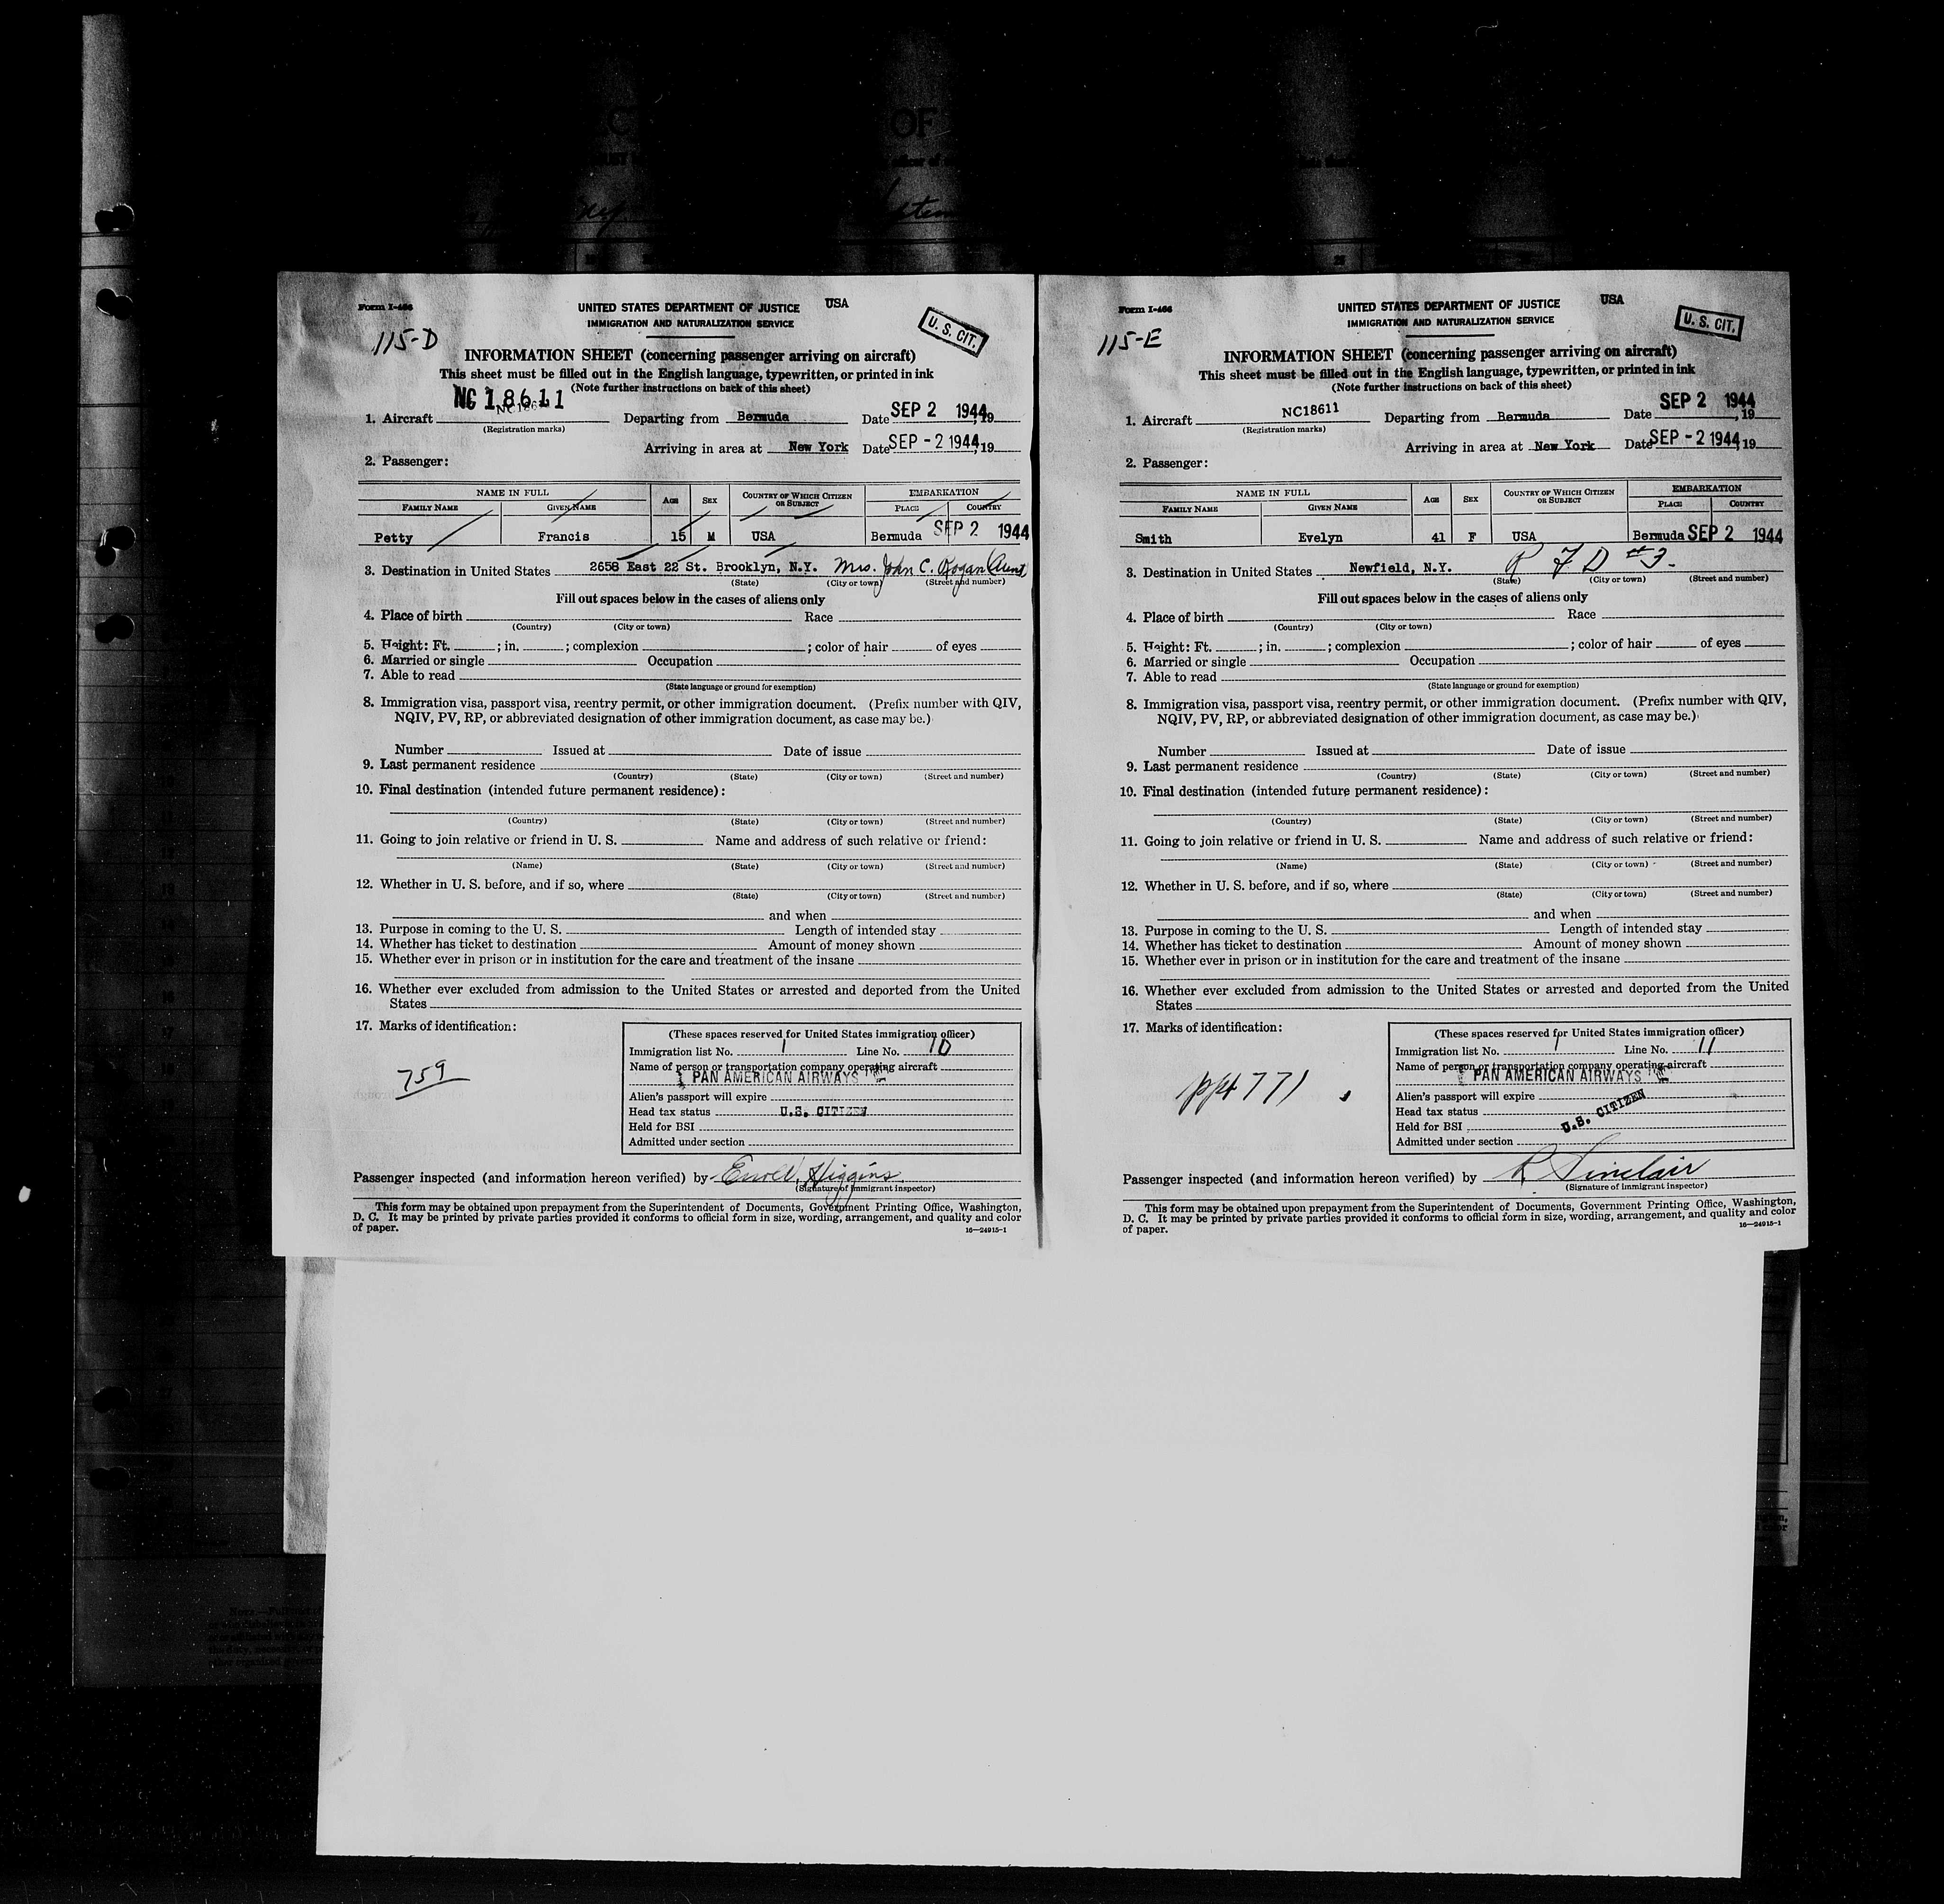 Form I-466
USA
UNITED STATES DEPARTMENT OF JUSTICE
IMMIGRATION AND NATURALIZATION SERVICE
U. S. CIT.
115-D
INFORMATION SHEET (concerning passenger arriving on aircraft)
This sheet must be filled out in the English language, typewritten, or printed in ink
(Note further instructions on back of this sheet)
NC 18611
1. Aircraft NC18611 Departing from Bermuda Date SEP 2 1944, 19
(Registration marks)
Arriving in area at New York Date SEP - 2 1944, 19
2. Passenger:
NAME IN FULL AGE SEX COUNTRY OF WHICH CITIZEN OR SUBJECT EMBARKATION
FAMILY NAME GIVEN NAME PLACE COUNTRY
Petty Francis 15 M USA Bermuda SEP 2 1944
3. Destination in United States 2658 East 22 St. Brooklyn, N.Y. Mrs. John C. Rogan (Aunt
(State) (City or town) (Street and number)
Fill out spaces below in the cases of aliens only
4. Place of birth Race
(Country) (City or town)
5. Height: Ft. ; in. ; complexion ; color of hair of eyes
6. Married or single Occupation
7. Able to read
(State language or ground for exemption)
8. Immigration visa, passport visa, reentry permit, or other immigration document. (Prefix number with QIV,
NQIV, PV, RP, or abbreviated designation of other immigration document, as case may be.)
Number Issued at Date of issue
9. Last permanent residence
(Country) (State) (City or town) (Street and number)
10. Final destination (intended future permanent residence):
(Country) (State) (City or town) (Street and number)
11. Going to join relative or friend in U. S. Name and address of such relative or friend:
(Name) (State) (City or town) (Street and number)
12. Whether in U. S. before, and if so, where
(State) (City or town) (Street and number)
and when
13. Purpose in coming to the U. S. Length of intended stay
14. Whether has ticket to destination Amount of money shown
15. Whether ever in prison or in institution for the care and treatment of the insane
16. Whether ever excluded from admission to the United States or arrested and deported from the United
States
17. Marks of identification:
759
(These spaces reserved for United States immigration officer)
Immigration list No. 1 Line No. 10
Name of person or transportation company operating aircraft
PAN AMERICAN AIRWAYS
Alien's passport will expire
Head tax status U.S. CITIZEN
Held for BSI
Admitted under section
Passenger inspected (and information hereon verified) by Higgins
(Signature of immigrant inspector)
This form may be obtained upon prepayment from the Superintendent of Documents, Government Printing Office, Washington,
D. C. It may be printed by private parties provided it conforms to official form in size, wording, arrangement, and quality and color
of paper.
16—24915-1
Form I-466
USA
UNITED STATES DEPARTMENT OF JUSTICE
IMMIGRATION AND NATURALIZATION SERVICE
U. S. CIT.
115-E
INFORMATION SHEET (concerning passenger arriving on aircraft)
This sheet must be filled out in the English language, typewritten, or printed in ink
(Note further instructions on back of this sheet)
1. Aircraft NC18611 Departing from Bermuda Date SEP 2 1944, 19
(Registration marks)
Arriving in area at New York Date SEP - 2 1944, 19
2. Passenger:
NAME IN FULL AGE SEX COUNTRY OF WHICH CITIZEN OR SUBJECT EMBARKATION
FAMILY NAME GIVEN NAME PLACE COUNTRY
Smith Evelyn 41 F USA Bermuda SEP 2 1944
3. Destination in United States Newfield, N.Y. R F D #3.
(State) (City or town) (Street and number)
Fill out spaces below in the cases of aliens only
4. Place of birth Race
(Country) (City or town)
5. Height: Ft. ; in. ; complexion ; color of hair of eyes
6. Married or single Occupation
7. Able to read
(State language or ground for exemption)
8. Immigration visa, passport visa, reentry permit, or other immigration document. (Prefix number with QIV,
NQIV, PV, RP, or abbreviated designation of other immigration document, as case may be.)
Number Issued at Date of issue
9. Last permanent residence
(Country) (State) (City or town) (Street and number)
10. Final destination (intended future permanent residence):
(Country) (State) (City or town) (Street and number)
11. Going to join relative or friend in U. S. Name and address of such relative or friend:
(Name) (State) (City or town) (Street and number)
12. Whether in U. S. before, and if so, where
(State) (City or town) (Street and number)
and when
13. Purpose in coming to the U. S. Length of intended stay
14. Whether has ticket to destination Amount of money shown
15. Whether ever in prison or in institution for the care and treatment of the insane
16. Whether ever excluded from admission to the United States or arrested and deported from the United
States
17. Marks of identification:
pp4771
(These spaces reserved for United States immigration officer)
Immigration list No. 1 Line No. 11
Name of person or transportation company operating aircraft
PAN AMERICAN AIRWAYS
Alien's passport will expire
Head tax status U.S. CITIZEN
Held for BSI
Admitted under section
Passenger inspected (and information hereon verified) by R Sinclair
(Signature of immigrant inspector)
This form may be obtained upon prepayment from the Superintendent of Documents, Government Printing Office, Washington,
D. C. It may be printed by private parties provided it conforms to official form in size, wording, arrangement, and quality and color
of paper.
16—24915-1